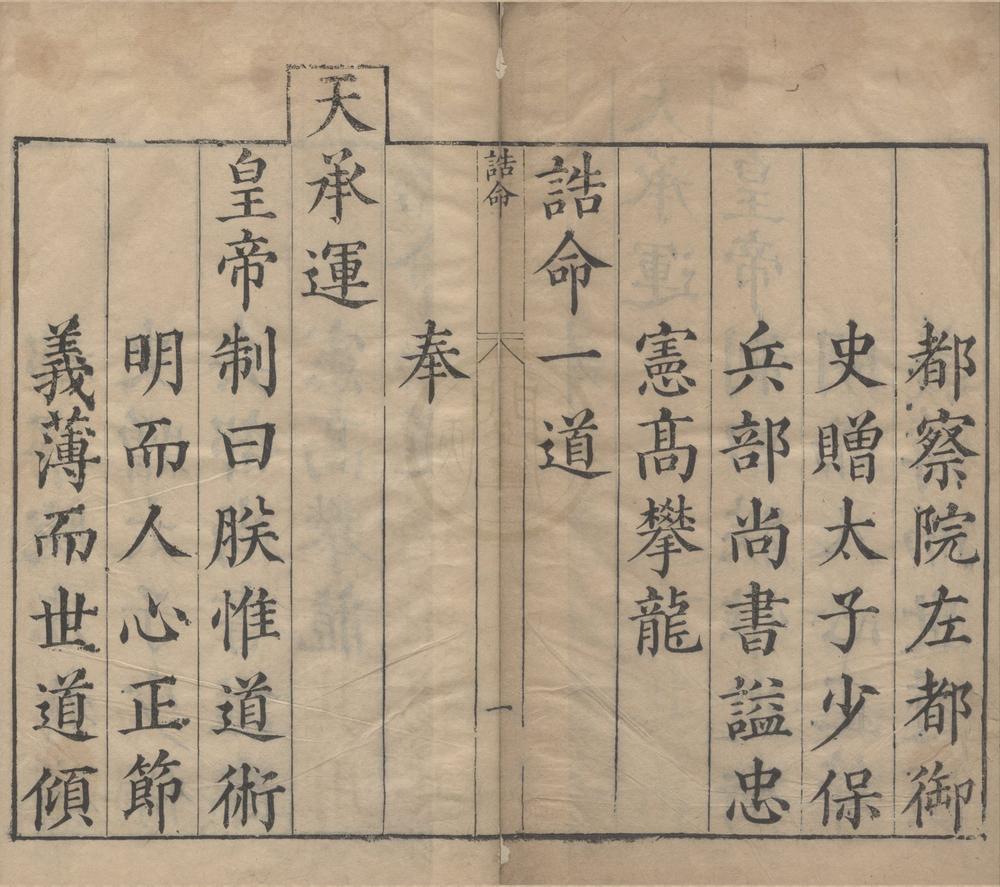 都察院左都御
史贈太子少保
兵部尚書謚忠
憲髙攀龍
誥命一道
誥命 一
奉
天承運
皇帝制曰朕惟道術
明而人心正節
義薄而世道傾